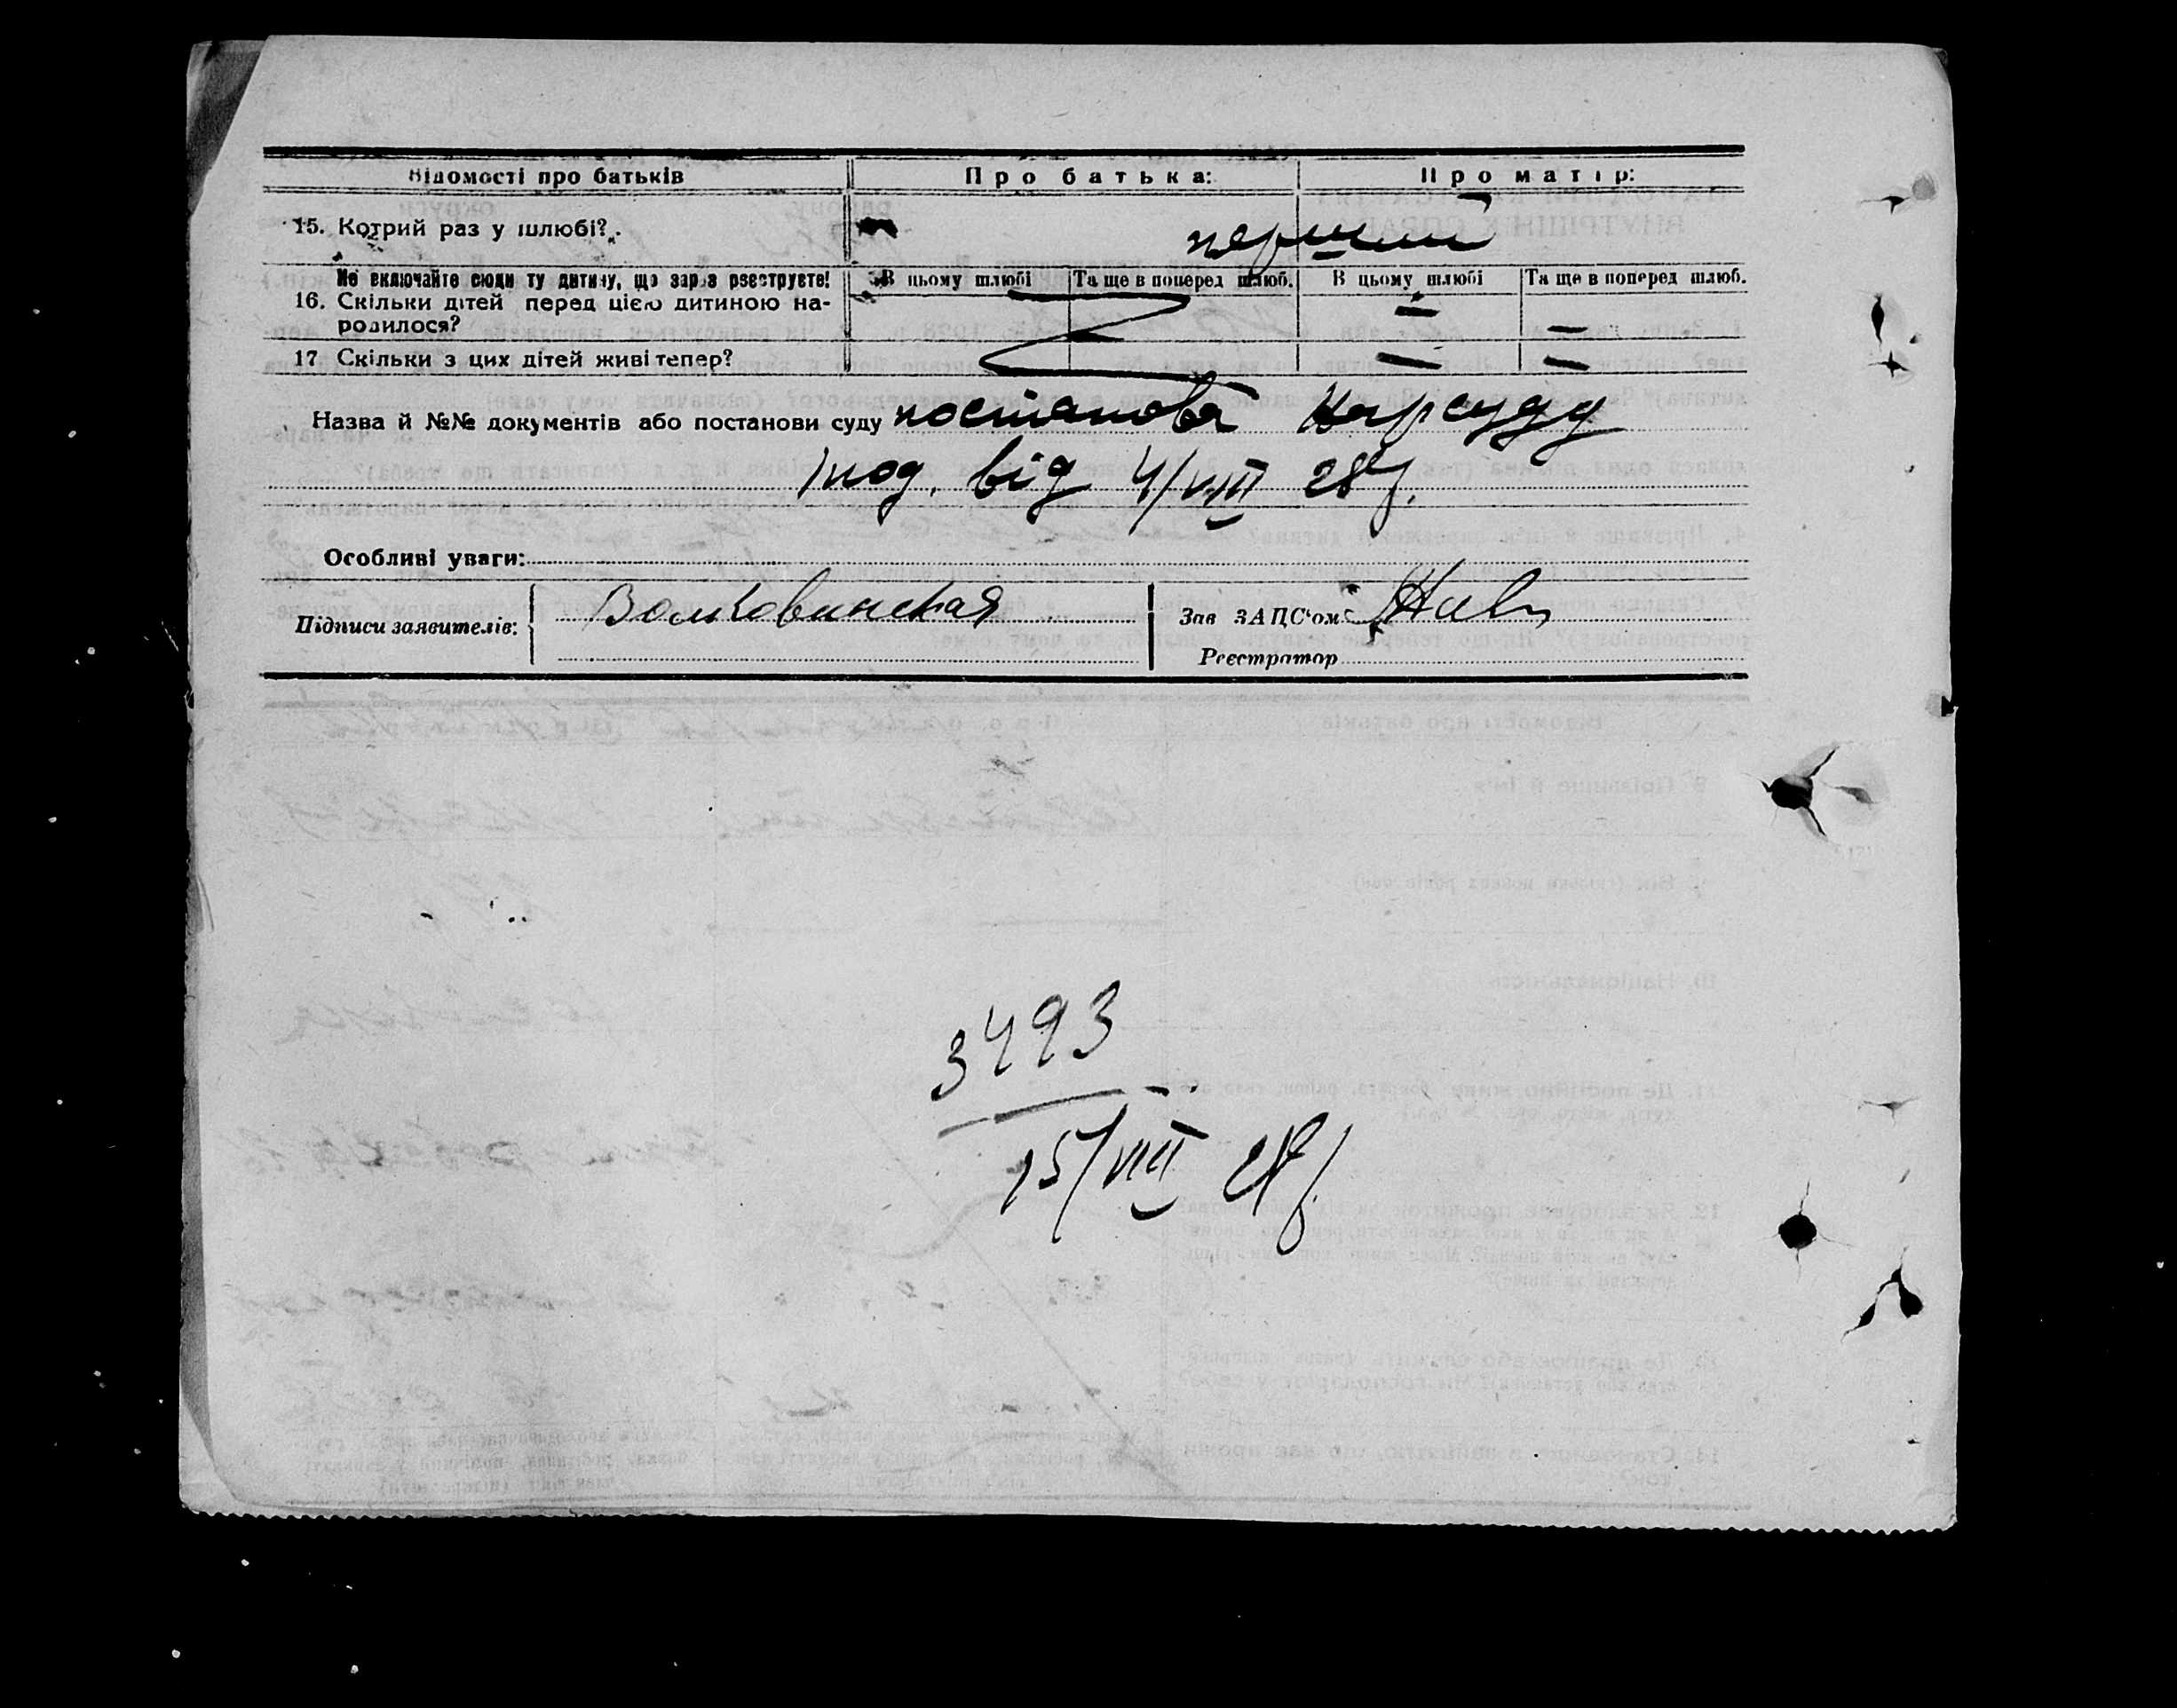 Відомості про батьків
Про батька:
Про матір:
15. Котрий раз у шлюбі?
перший
Не включайте сюди ту дитину, що зараз реєструєте!
В цьому шлюбі
Та ще в поперед шлюб.
В цьому шлюбі
Та ще в поперед шлюб.
16. Скільки дітей перед цією дитиною на-
родилося?
—
—
17 Скільки з цих дітей живі тепер?
—
—
Назва й №№ документів або постанови суду постанова Нарсуду
від 4/VIII 28р.
Особливі уваги:
Підписи заявителів:
Волковинская
Зав ЗАГС'ом
Реєстратор
3493
15/VIII 28р.